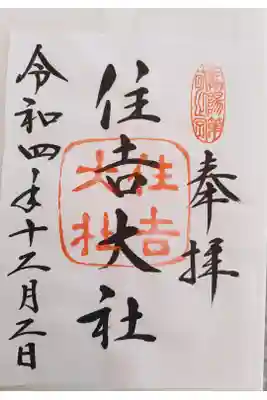 奉拝
住吉大社
住吉
大社
令和四年十二月二日